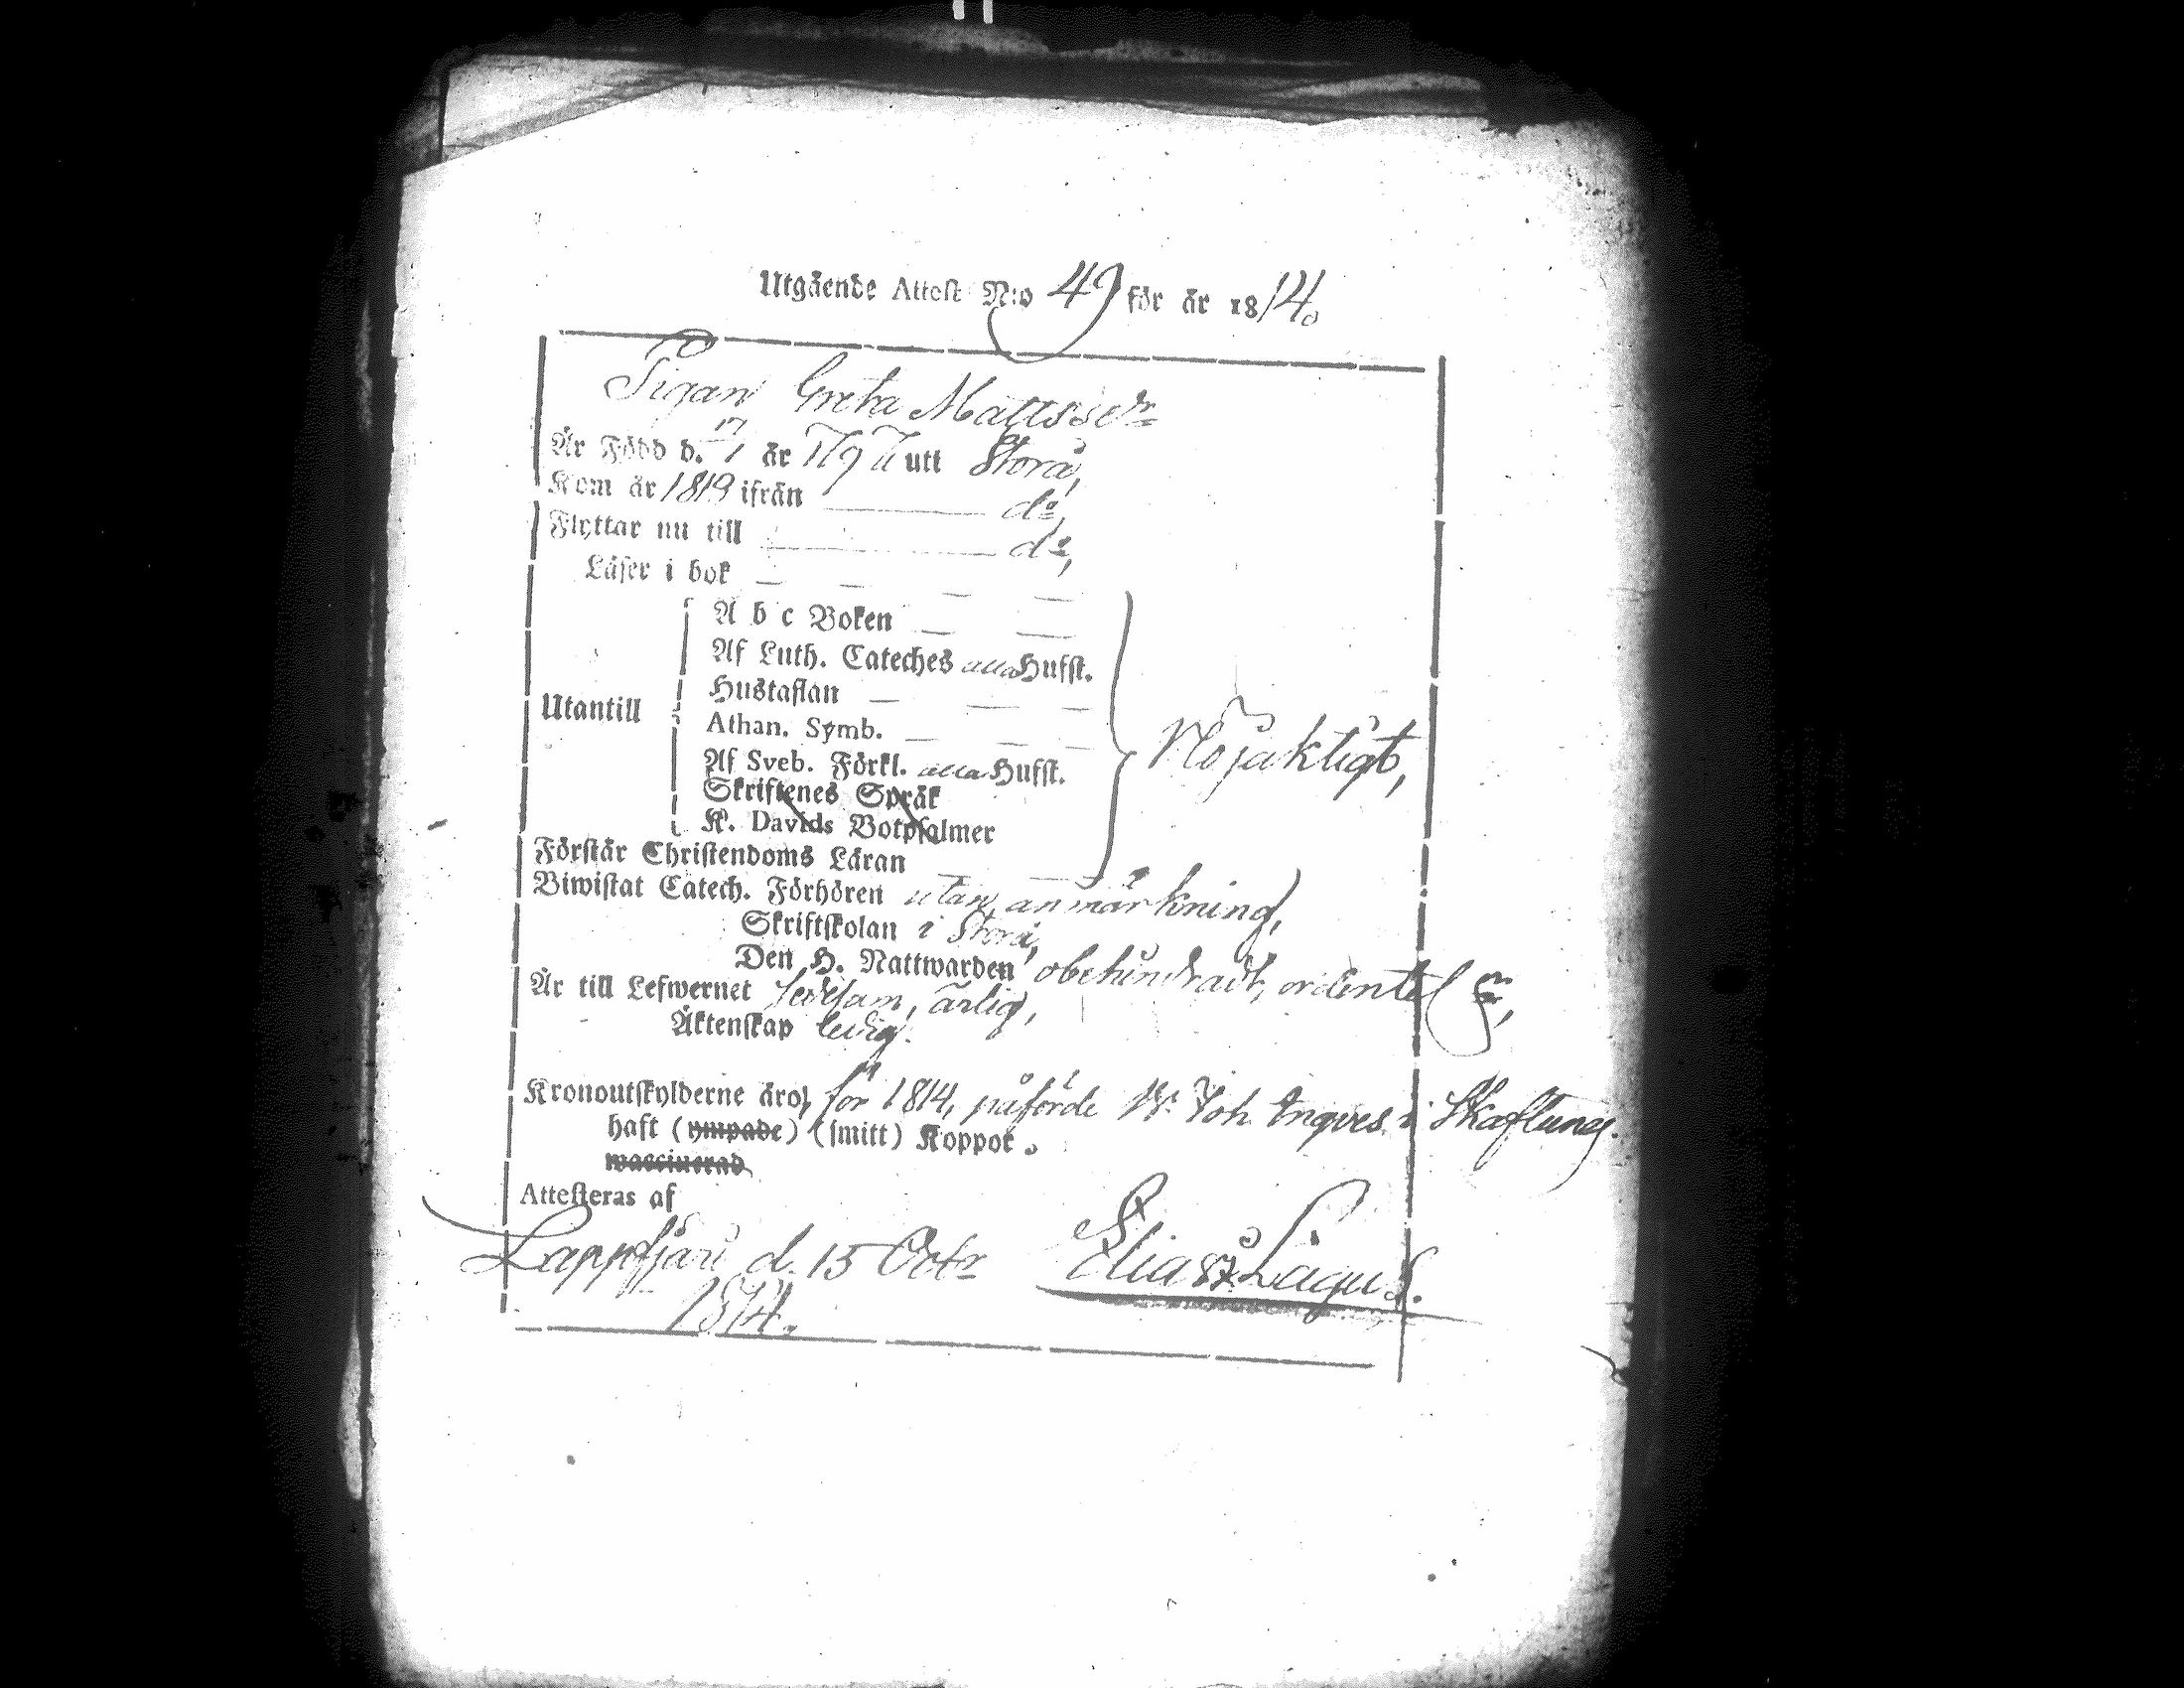 Utgående Attest N:o 49 för år 1814.
Pigan Greta Mattsdr
Är Född d. 17/7 år 1797 utt Storå,
Kom år 1813 ifrån — do,
Flyttar nu till — do,
Läser i bok — — — —
A b c Boken — —
Af Luth. Cateches alla Hufst.
Hustaflan — — —
Utantill
Athan. Symb. — — —
Nöjaktigt,
Af Sveb. Förkl. alla Hufst.
Skriftenes Språk
K. Davids Botpsalmer
Förstår Christendoms Läran — —
Biwistat Catech. Förhören utan anmärkning,
Skriftskolan i Storå,
Den H. Nattwarden obehindradt, ordentel
Är till Lefwernet sedesam, ärlig,
Äktenskap ledig.
Kronoutskylderne äro, för 1814, påförde Joh. Ingves i Skaftung.
haft (ympade) (smitt) Koppor.
waccinerad
Attesteras af
Lappfjärd d. 15 Octr Elias Lagus.
1814.